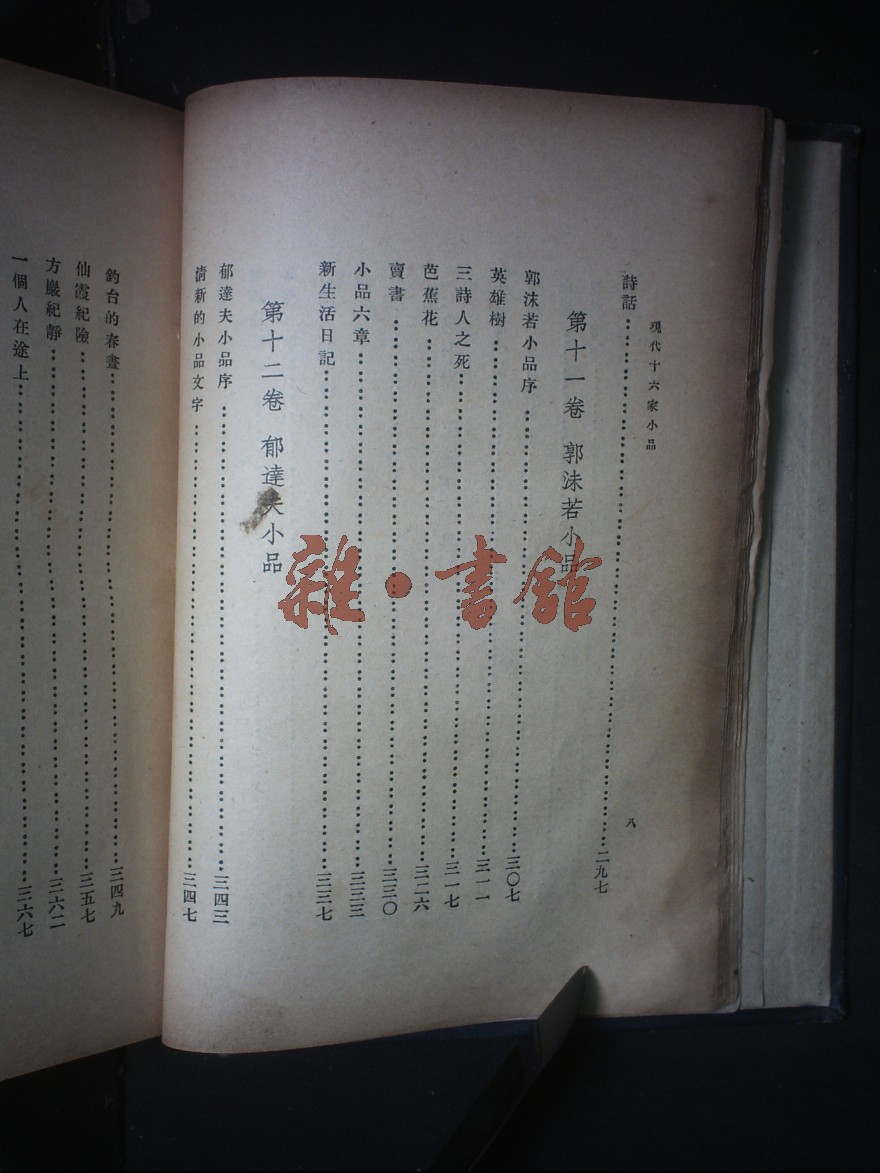 現代十六家小品
八
詩話……二九七
第十一卷 郭沫若小品
郭沫若小品序……三〇七
英雄樹……三一一
三詩人之死……三一七
芭蕉花……三二六
賣書……三三〇
小品六章……三三三
新生活日記……三三七
第十二卷 郁達夫小品
郁達夫小品序……三四三
清新的小品文字……三四七
釣台的春晝……三四九
仙霞紀險……三五七
方巖紀靜……三六二
一個人在途上……三六七
雜·書館